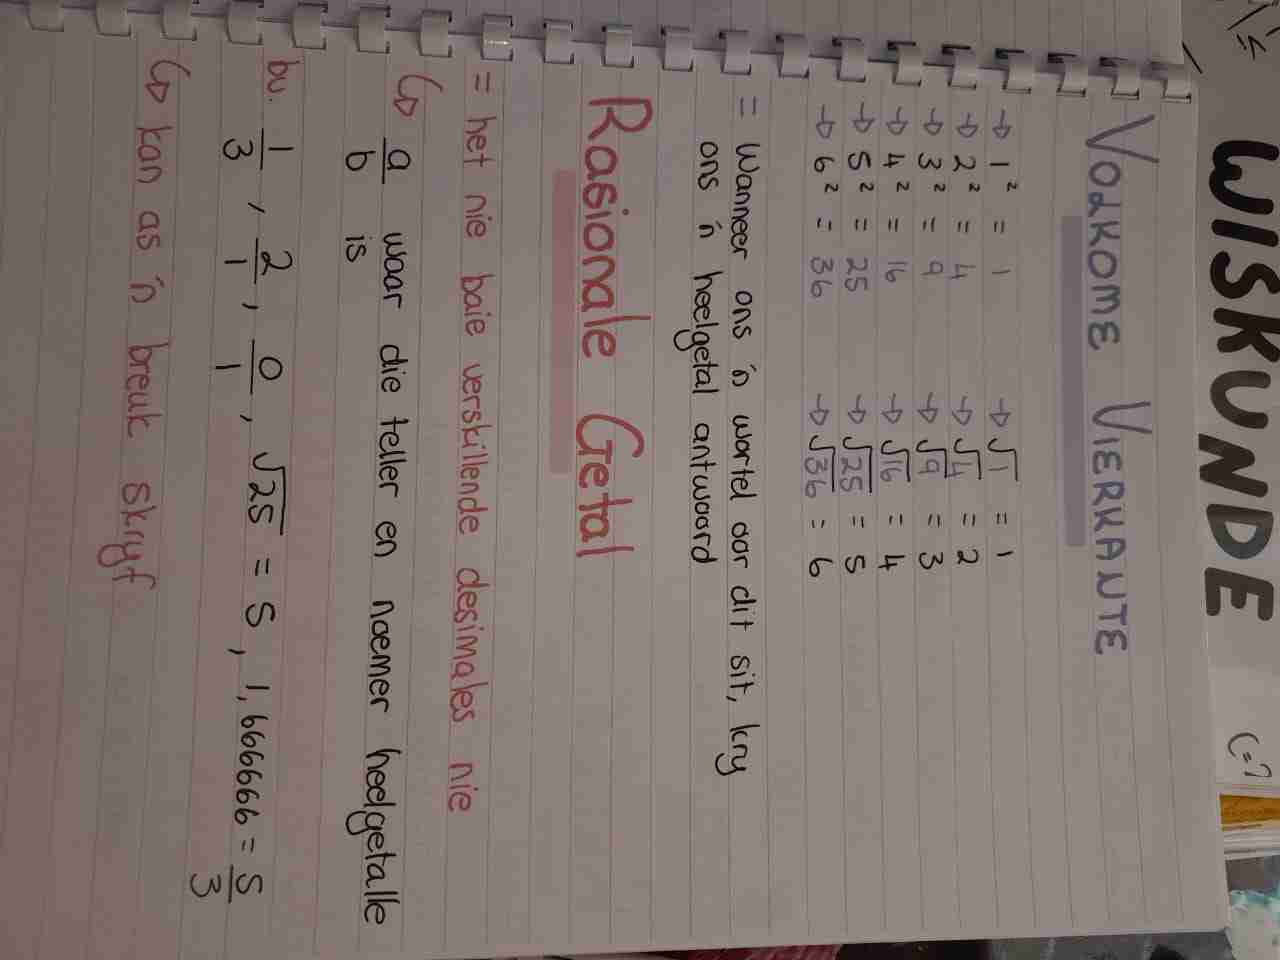 WISKUNDE
VOLKOME VIERKANTE
→ 1² = 1 → √1 = 1
→ 2² = 4 → √4 = 2
→ 3² = 9 → √9 = 3
→ 4² = 16 → √16 = 4
→ 5² = 25 → √25 = 5
→ 6² = 36 → √36 = 6
= Wanneer ons 'n wortel oor dit sit, kry
ons 'n heelgetal antwoord
Rasionale Getal
= het nie baie verskillende desimales nie
↳ a/b waar die teller en noemer heelgetalle
is
bv. 1/3, 2/1, 0/1, √25 = 5, 1,666666 = 5/3
↳ kan as 'n breuk skryf